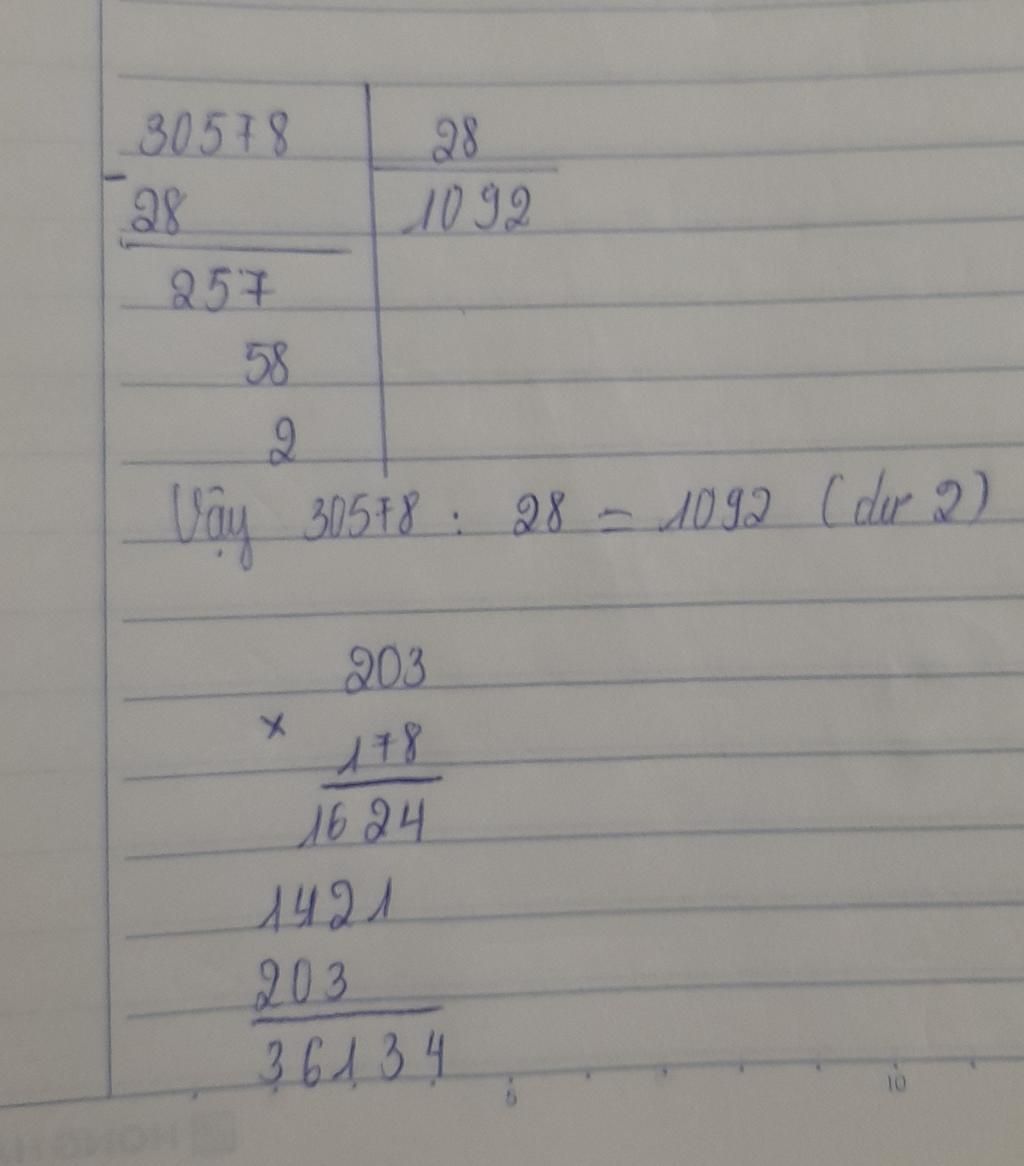 30578 | 28
- 28 | 1092
257
58
2
Vậy 30578 : 28 = 1092 (dư 2)
203
×
178
1624
1421
203
36134
5 10